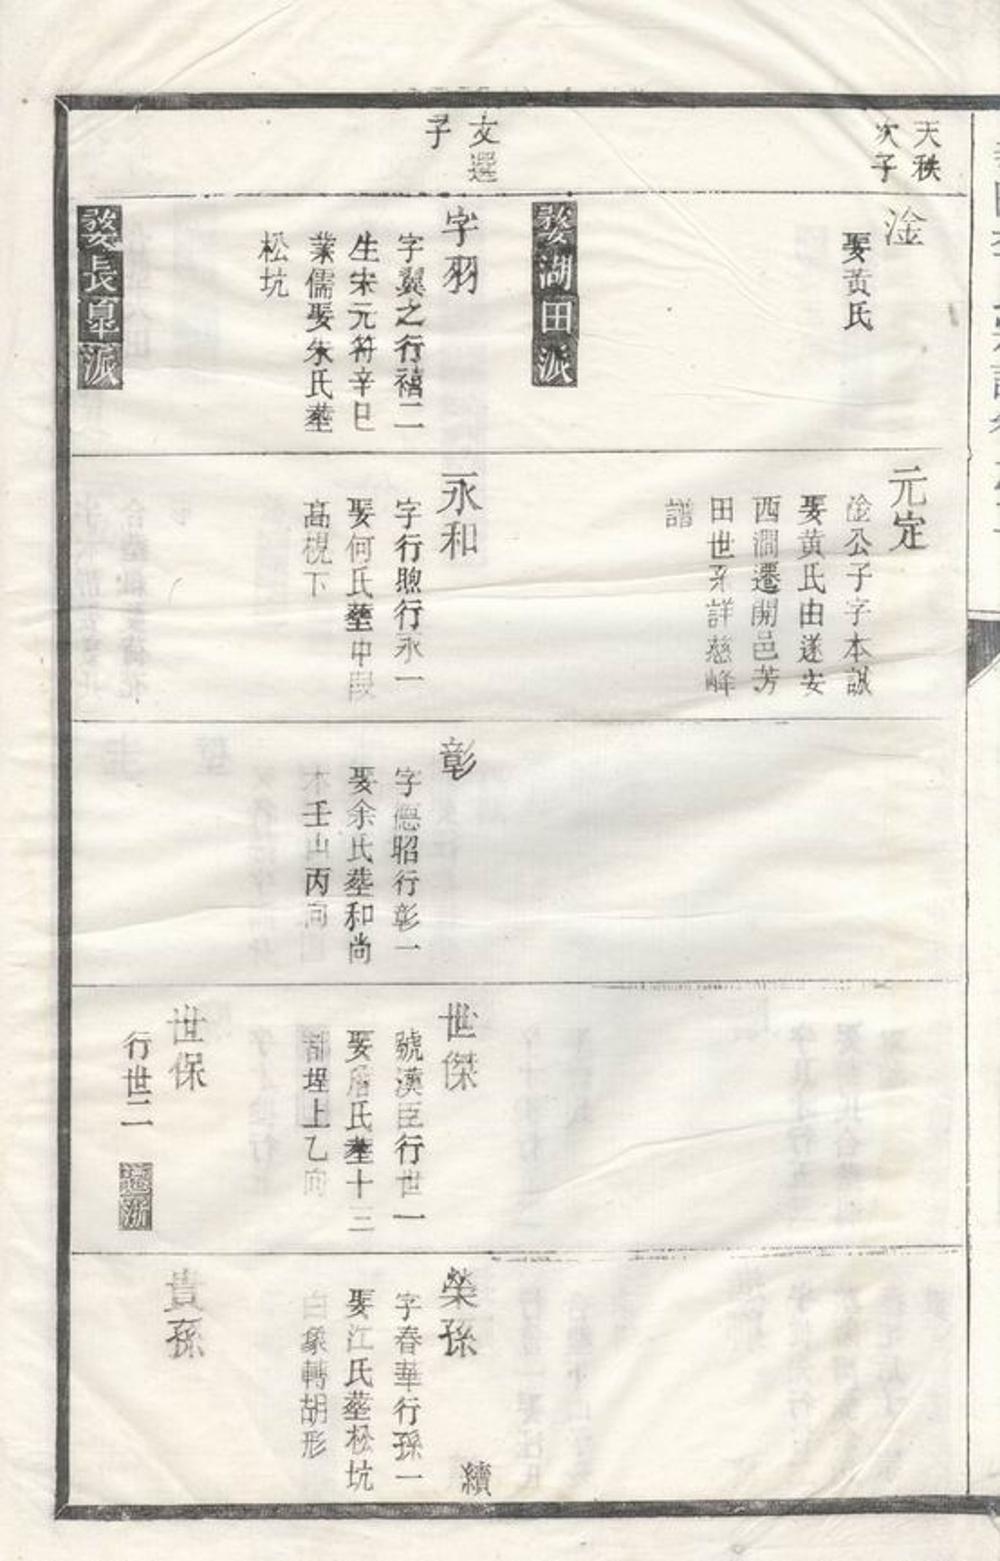 天秩
次子
淦
娶黄氏
元定
淦公子字本謀
娶黄氏由遂安
西澗遷開邑芳
田世系詳慈峰
譜
婺湖田派
文選
子
字羽
字翼之行禧二
生宋元符辛巳
業儒娶朱氏塟
松坑
永和
字行煦行永一
娶何氏塟中段
高梘下
彰
字德昭行彰一
娶余氏塟和尚
木壬山丙向
世傑
號漢臣行世一
娶詹氏塟十三
都埕上乙向
榮孫
續
字春華行孫一
娶江氏塟松坑
白象轉胡形
世保
行世二 遷浙
貴孫
婺長皐派